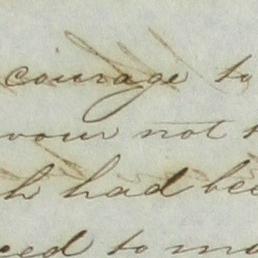 courage to
vour not
h had bee
ced to ma